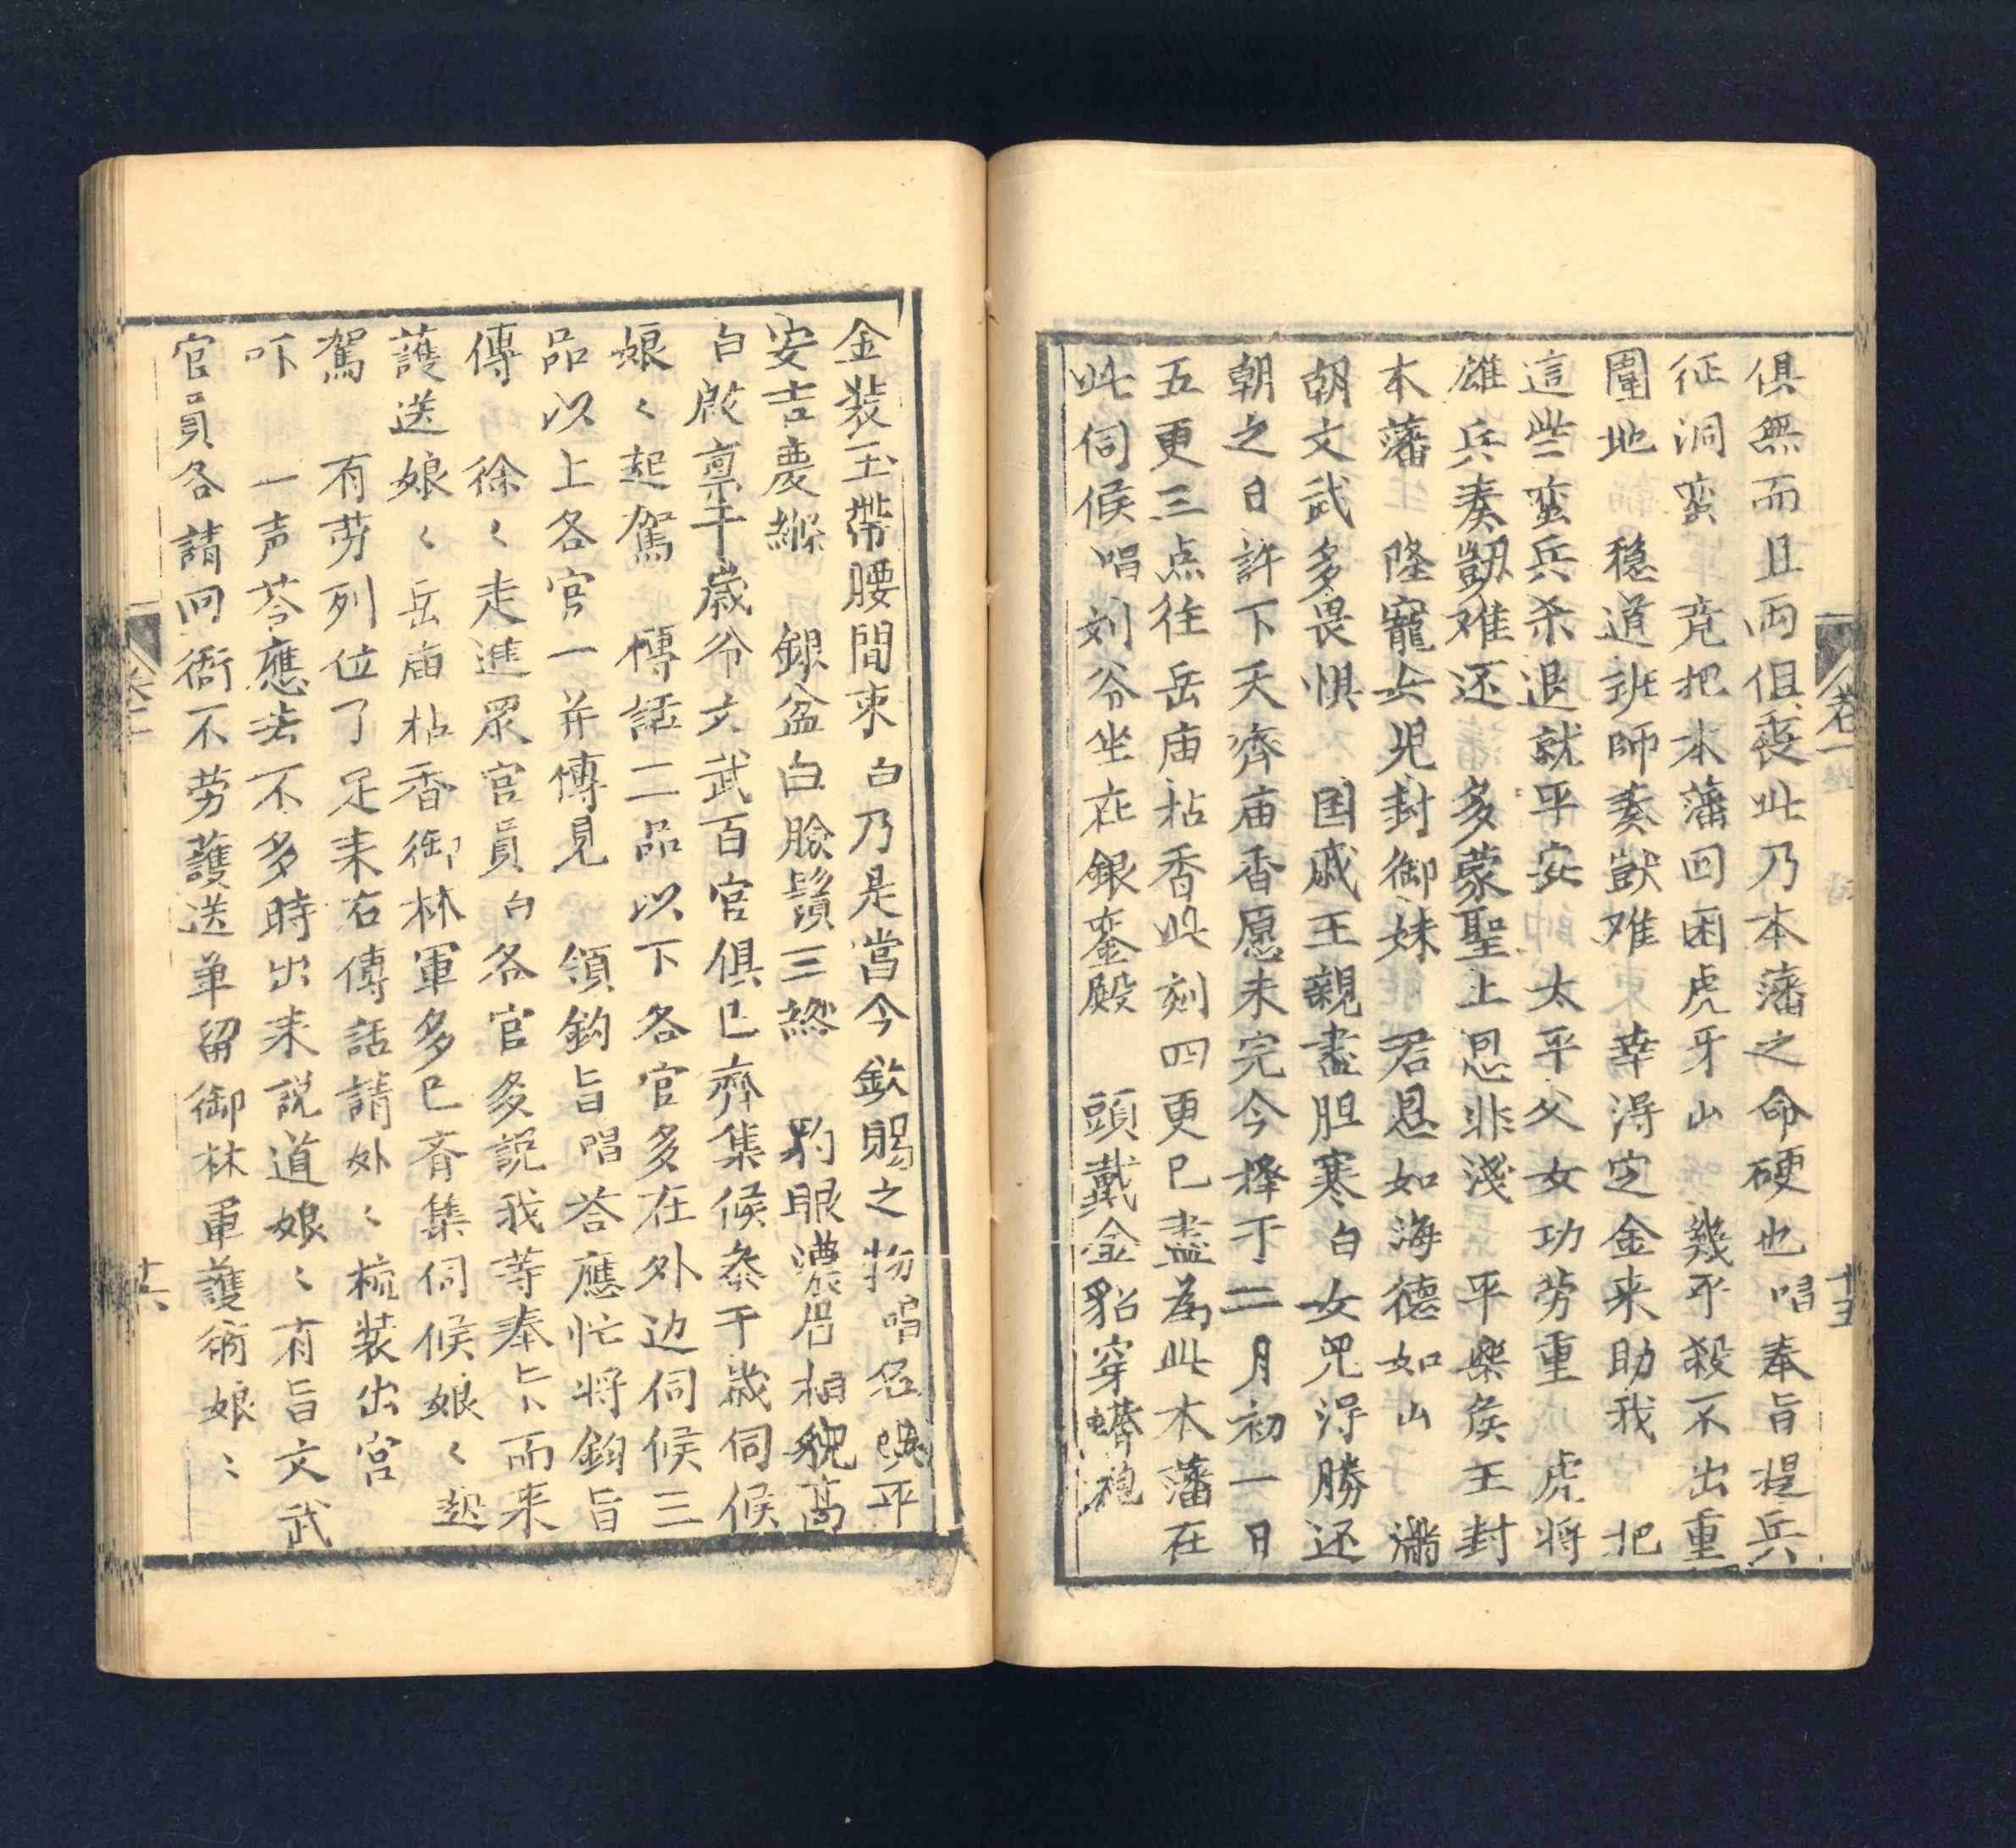 卷一
十五
俱無而且両俱丧此乃本藩之命硬也唱奉旨提兵
征洞蛮 竟把本藩回困虎牙山 幾乎殺不出重
圍地 穏道班師奏獃难 幸淂定金来助我 把
這些蛮兵杀退就平安 太平父女功劳重 虎将
雄兵奏凱难还 多蒙聖上恩非淺 平樂侯王封
本藩 隆寵女児封御妹 君恩如海德如山 滿
朝文武多畏惧 国戚王親盡胆寒白女児淂勝还
朝之日許下天齊庙香愿未完今擇于二月初一日
五更三点往岳庙拈香此刻四更已盡為此本藩在
此伺候唱刘爷坐在銀銮殿 頭戴金貂穿蟒袍
金装玉帶腰間束白乃是當今欽賜之物唱名喚平
安吉慶縧 銀盆白臉鬚三綹 豹眼濃眉相貌高
白啟禀千歲爷文武百官俱已齊集候叅千歲伺候
娘〱起駕 傳話二品以下各官多在外边伺候三
品以上各官一并傳見 領鈞旨唱荅應忙将鈞旨
傳 徐〱走進眾官員白各官多説我等奉旨而来
護送娘〱岳庙拈香御林軍多已齊集伺候娘〱起
駕 有劳列位了足耒右傳話請外〻梳装出宫
吓 一声荅應去不多時出来説道娘〻有旨文武
官員各請回衙不劳護送单留御林軍護衛娘〻
十六